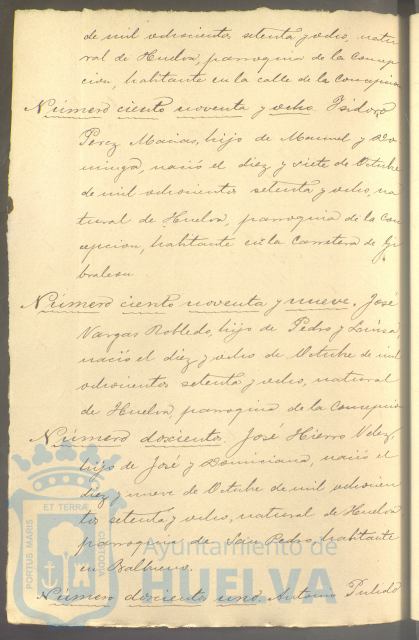 de mil ochocientos setenta y ocho, natu-
ral de Huelva, parroquia de la Concep-
cion, habitante en la calle de la Concepcion
Número ciento noventa y ocho. Isidoro
Perez Macias, hijo de Manuel y Do-
minga, nació el diez y siete de Octubre
de mil ochocientos setenta y ocho, na-
tural de Huelva, parroquia de la Con-
cepcion, habitante en la Carretera de Gi-
braleon.
Número ciento noventa y nueve. José
Vargas Robledo, hijo de Pedro y Luisa,
nació el diez y ocho de Octubre de mil
ochocientos setenta y ocho, natural
de Huelva, parroquia de la Concepcion
Número doscientos. José Hierro Velez,
hijo de José y Dominciana, nació el
diez y nueve de Octubre de mil ochocien-
tos setenta y ocho, natural de Huelva
parroquia de San Pedro, habitante
en
Número doscientos uno. Antonio Pulido
PORTUS MARIS
ET TERRÆ
CUSTODIA
Ayuntamiento de
HUELVA